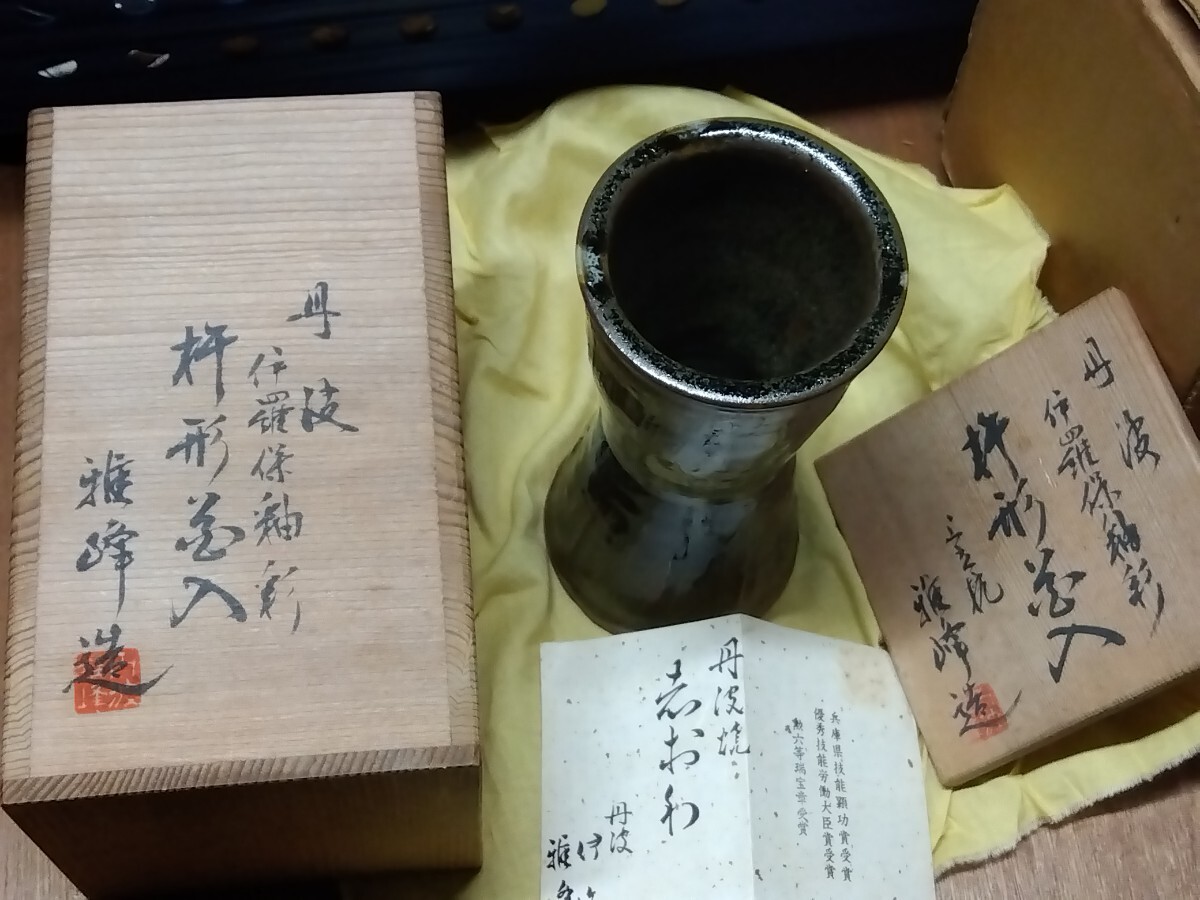 丹波
伊羅保釉彩
杵形花入
雅峰造
丹波
伊羅保釉彩
杵形花入
雅峰造
兵庫県技能顕功賞受賞
優秀技能労働大臣賞受賞
勲六等瑞宝章受賞
丹波焼
志おり
丹波
伊
雅